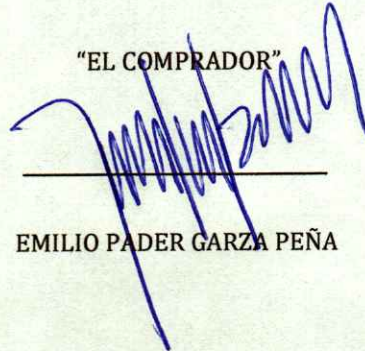 "EL COMPRADOR"
EMILIO PADER GARZA PEÑA